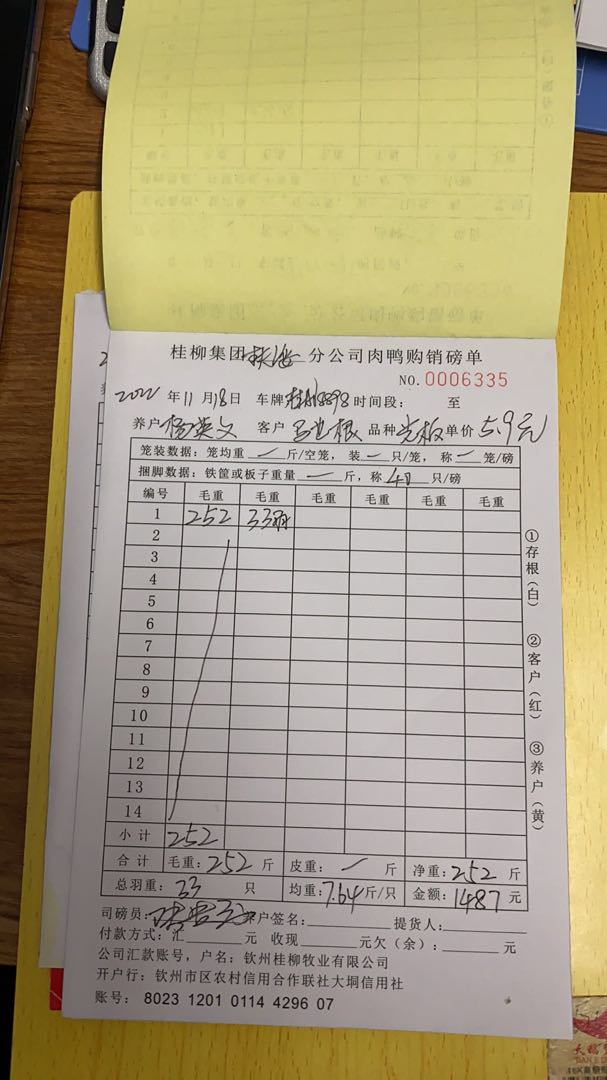 桂柳集团 分公司肉鸭购销磅单
NO.0006335
2022 年 11 月 18 日 车牌 时间段: 至
养户 杨英文 客户 品种 光板 单价 5.9元
笼装数据: 笼均重 一 斤/空笼, 装 一 只/笼, 称 一 笼/磅
捆脚数据: 铁筐或板子重量 一 斤, 称 只/磅
编号 毛重 毛重 毛重 毛重 毛重 毛重
1 252 33羽
2
3
4
5
6
7
8
9
10
11
12
13
14
小计 252
合计 毛重: 252 斤 皮重: 斤 净重: 252 斤
总羽重: 33 只 均重: 7.64 斤/只 金额: 1487 元
司磅员: 户签名: 提货人:
付款方式: 汇 元 收现 元欠(余): 元
公司汇款账号, 户名: 钦州桂柳牧业有限公司
开户行: 钦州市区农村信用合作联社大垌信用社
账号: 8023 1201 0114 4296 07
①存根(白)
②客户(红)
③养户(黄)